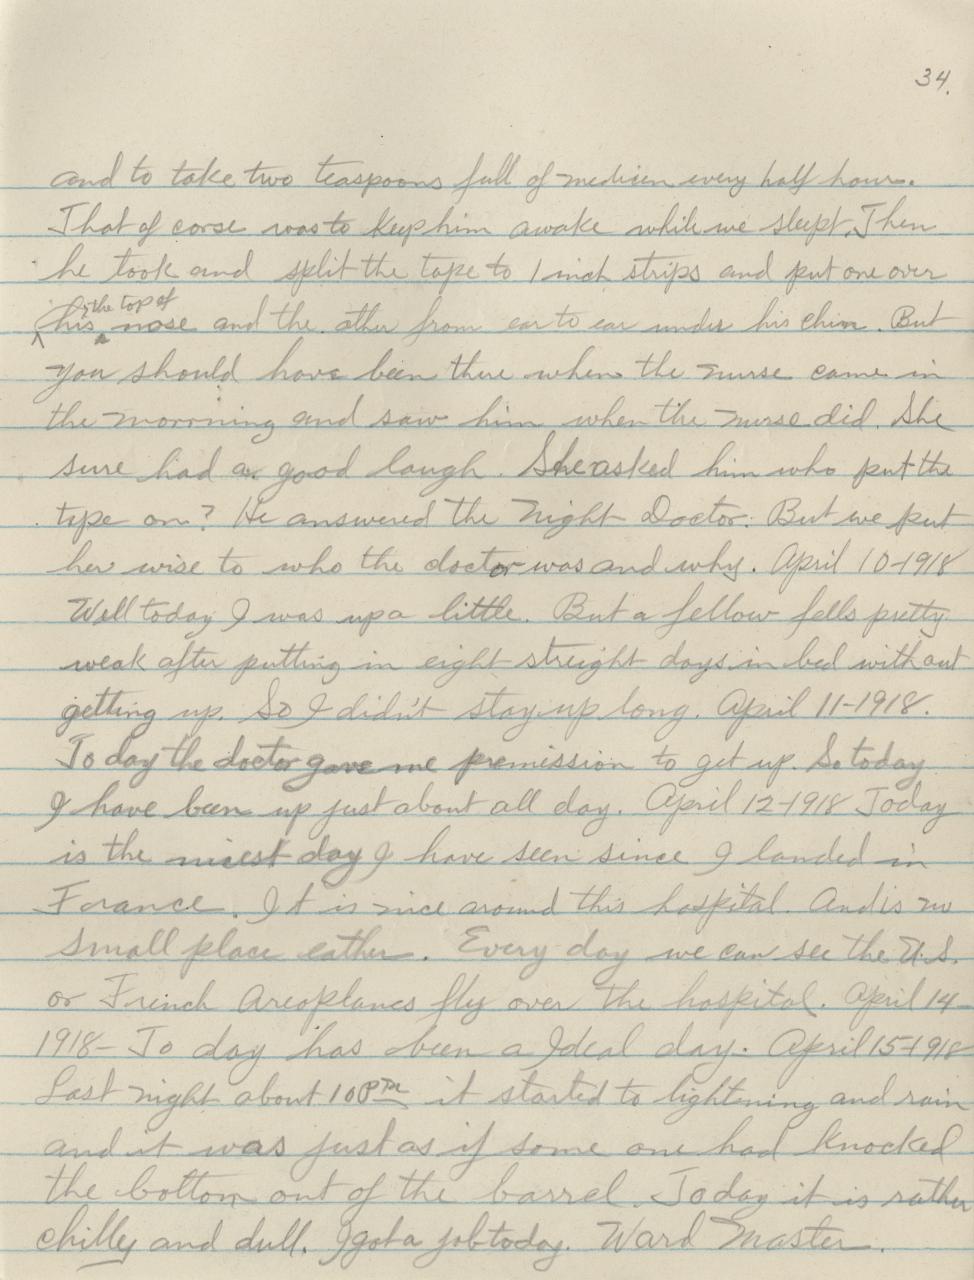 34.
and to take two teaspoons full of medisen every half hour.
That of corse was to keep him awake while we sleept. Then
he took and split the tape to 1 inch strips and put one over
the top of
his nose and the other from ear to ear under his chin. But
you should have been there when the nurse came in
the morrning and saw him when the nurse did. She
sure had a good laugh. She asked him who put the
tape on? He answered the Night Doctor. But we put
her wise to who the doctor was and why. April 10-1918
Well today I was up a little. But a fellow fells pretty
weak after putting in eight streight days in bed without
getting up. So I didn't stay up long. April 11-1918.
To day the doctor gave me premission to get up. So today
I have been up just about all day. April 12-1918 Today
is the nicest day I have seen since I landed in
France. It is nice around this hospital. And is no
small place eather. Every day we can see the U.S.
or French Areoplanes fly over the hospital. April 14-
1918- To day has been a Ideal day. April 15-1918
Last night about 10 PM it started to lightening and rain
and it was just as if some one had knocked
the bottom out of the barrel. Today it is rather
chilly and dull. I got a job today. Ward Master.